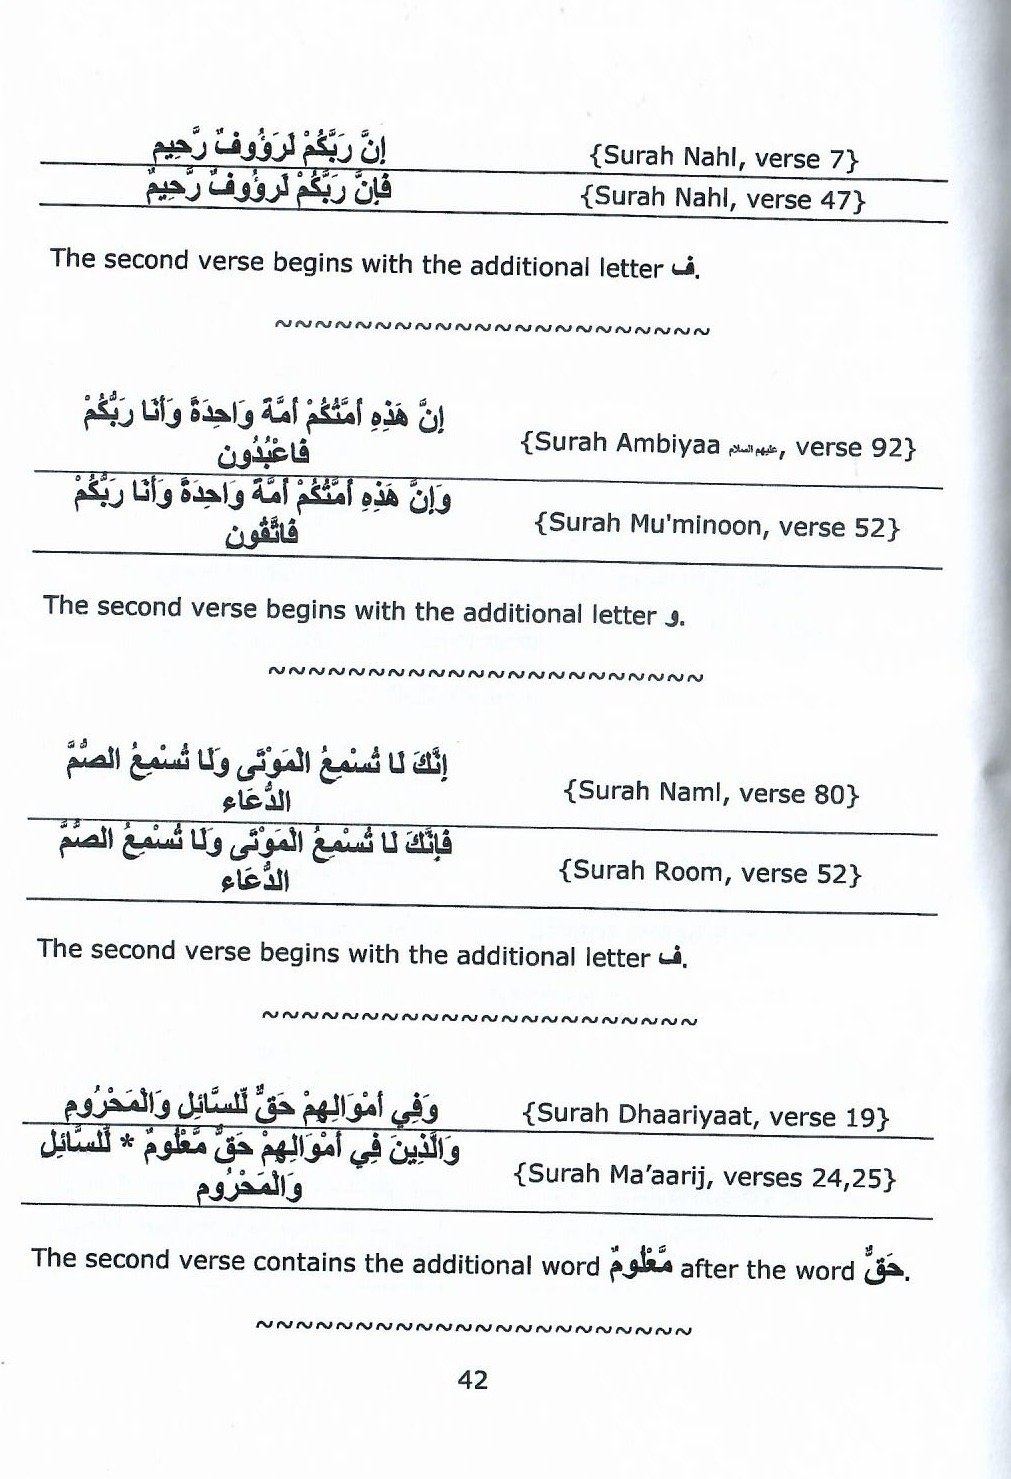 إِنَّ رَبَّكُمْ لَرَؤُوفٌ رَّحِيم {Surah Nahl, verse 7}
فَإِنَّ رَبَّكُمْ لَرؤُوفٌ رَّحِيمٌ {Surah Nahl, verse 47}
The second verse begins with the additional letter ف.
~~~~~~~~~~~~~~~~~~~~~~
إِنَّ هَذِهِ أُمَّتُكُمْ أُمَّةً وَاحِدَةً وَأَنَا رَبُّكُمْ
فَاعْبُدُون {Surah Ambiyaa عليهم السلام, verse 92}
وَإِنَّ هَذِهِ أُمَّتُكُمْ أُمَّةً وَاحِدَةً وَأَنَا رَبُّكُمْ
فَاتَّقُون {Surah Mu'minoon, verse 52}
The second verse begins with the additional letter و.
~~~~~~~~~~~~~~~~~~~~~~
إِنَّكَ لَا تُسْمِعُ الْمَوْتَى وَلَا تُسْمِعُ الصُّمَّ
الدُّعَاء {Surah Naml, verse 80}
فَإِنَّكَ لَا تُسْمِعُ الْمَوْتَى وَلَا تُسْمِعُ الصُّمَّ
الدُّعَاء {Surah Room, verse 52}
The second verse begins with the additional letter ف.
~~~~~~~~~~~~~~~~~~~~~~
وَفِي أَمْوَالِهِمْ حَقٌّ لِّلسَّائِلِ وَالْمَحْرُومِ {Surah Dhaariyaat, verse 19}
وَالَّذِينَ فِي أَمْوَالِهِمْ حَقٌّ مَّعْلُومٌ * لِّلسَّائِلِ
وَالْمَحْرُومِ {Surah Ma’aarij, verses 24,25}
The second verse contains the additional word مَّعْلُومٌ after the word حَقٌّ.
~~~~~~~~~~~~~~~~~~~~~~
42